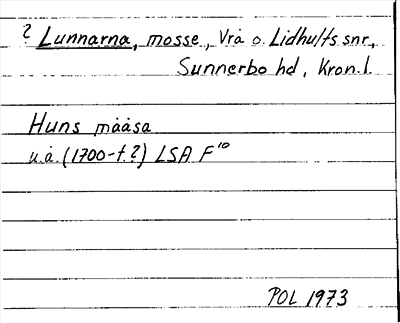 ? Lunnarna, mosse, Vrå o. Lidhults snr,
Sunnerbo hd, Kron.l.
Huns määsa
u.å. (1700-t.?) LSA F¹⁰
POL 1973